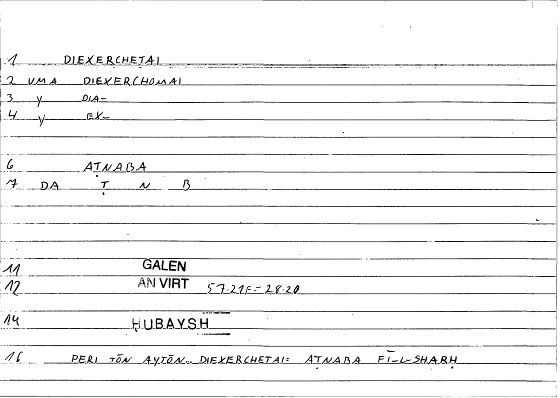 1 DIEXERCHETAI
2 VMA DIEXERCHOMAI
3 y DIA-
4 y EX-
6 AṬNABA
7 DA Ṭ N B
11 GALEN
12 AN VIRT 57.21F=28.20
14 ḤUBAYSH
16 PERI TŌN AYTŌN.. DIEXERCHETAI= AṬNABA FĪ-L-SHARḤ